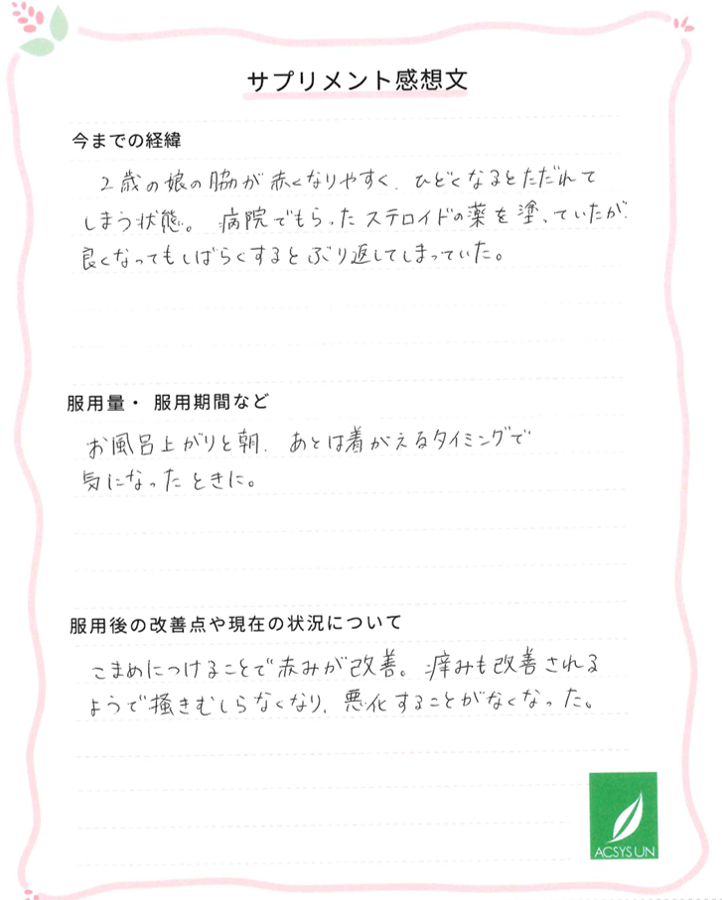 サプリメント感想文
今までの経緯
2歳の娘の脇が赤くなりやすく、ひどくなるとただれて
しまう状態。病院でもらったステロイドの薬を塗っていたが
良くなってもしばらくするとぶり返してしまっていた。
服用量・ 服用期間など
お風呂上がりと朝、あとは着がえるタイミングで
気になったときに。
服用後の改善点や現在の状況について
こまめにつけることで赤みが改善。痒みも改善される
ようで掻きむしらなくなり、悪化することがなくなった。
ACSYSUN